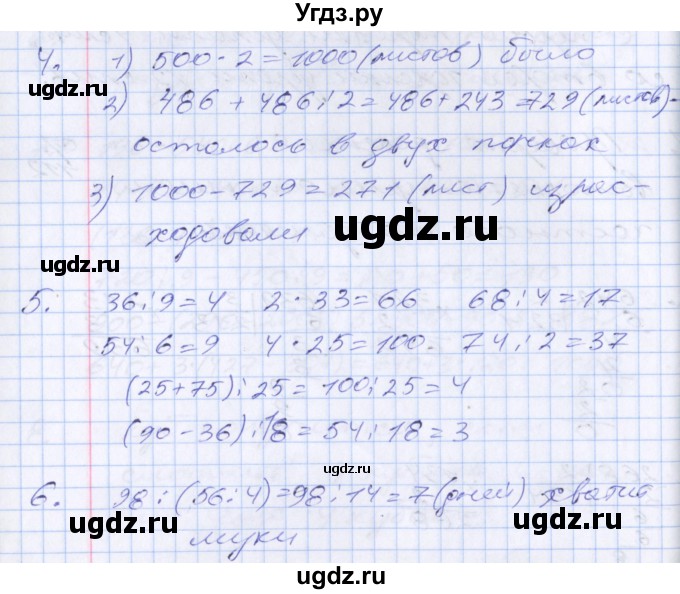 Угдз.ру
4. 1) 500 · 2 = 1000 (листов) было
2) 486 + 486 : 2 = 486 + 243 = 729 (листов) -
осталось в двух пачках
3) 1000 - 729 = 271 (лист) израс-
ходовали
ugdz.ru
ugdz.ru
ugdz.ru
5. 36 : 9 = 4 2 · 33 = 66 68 : 4 = 17
54 : 6 = 9 4 · 25 = 100. 74 : 2 = 37
(25 + 75) : 25 = 100 : 25 = 4
(90 - 36) : 18 = 54 : 18 = 3
ugdz.ru
6. 98 : (56 : 4) = 98 : 14 = 7 (дней) хватит
ugdz.ru
ugdz.ru
муки
ugdz.ru